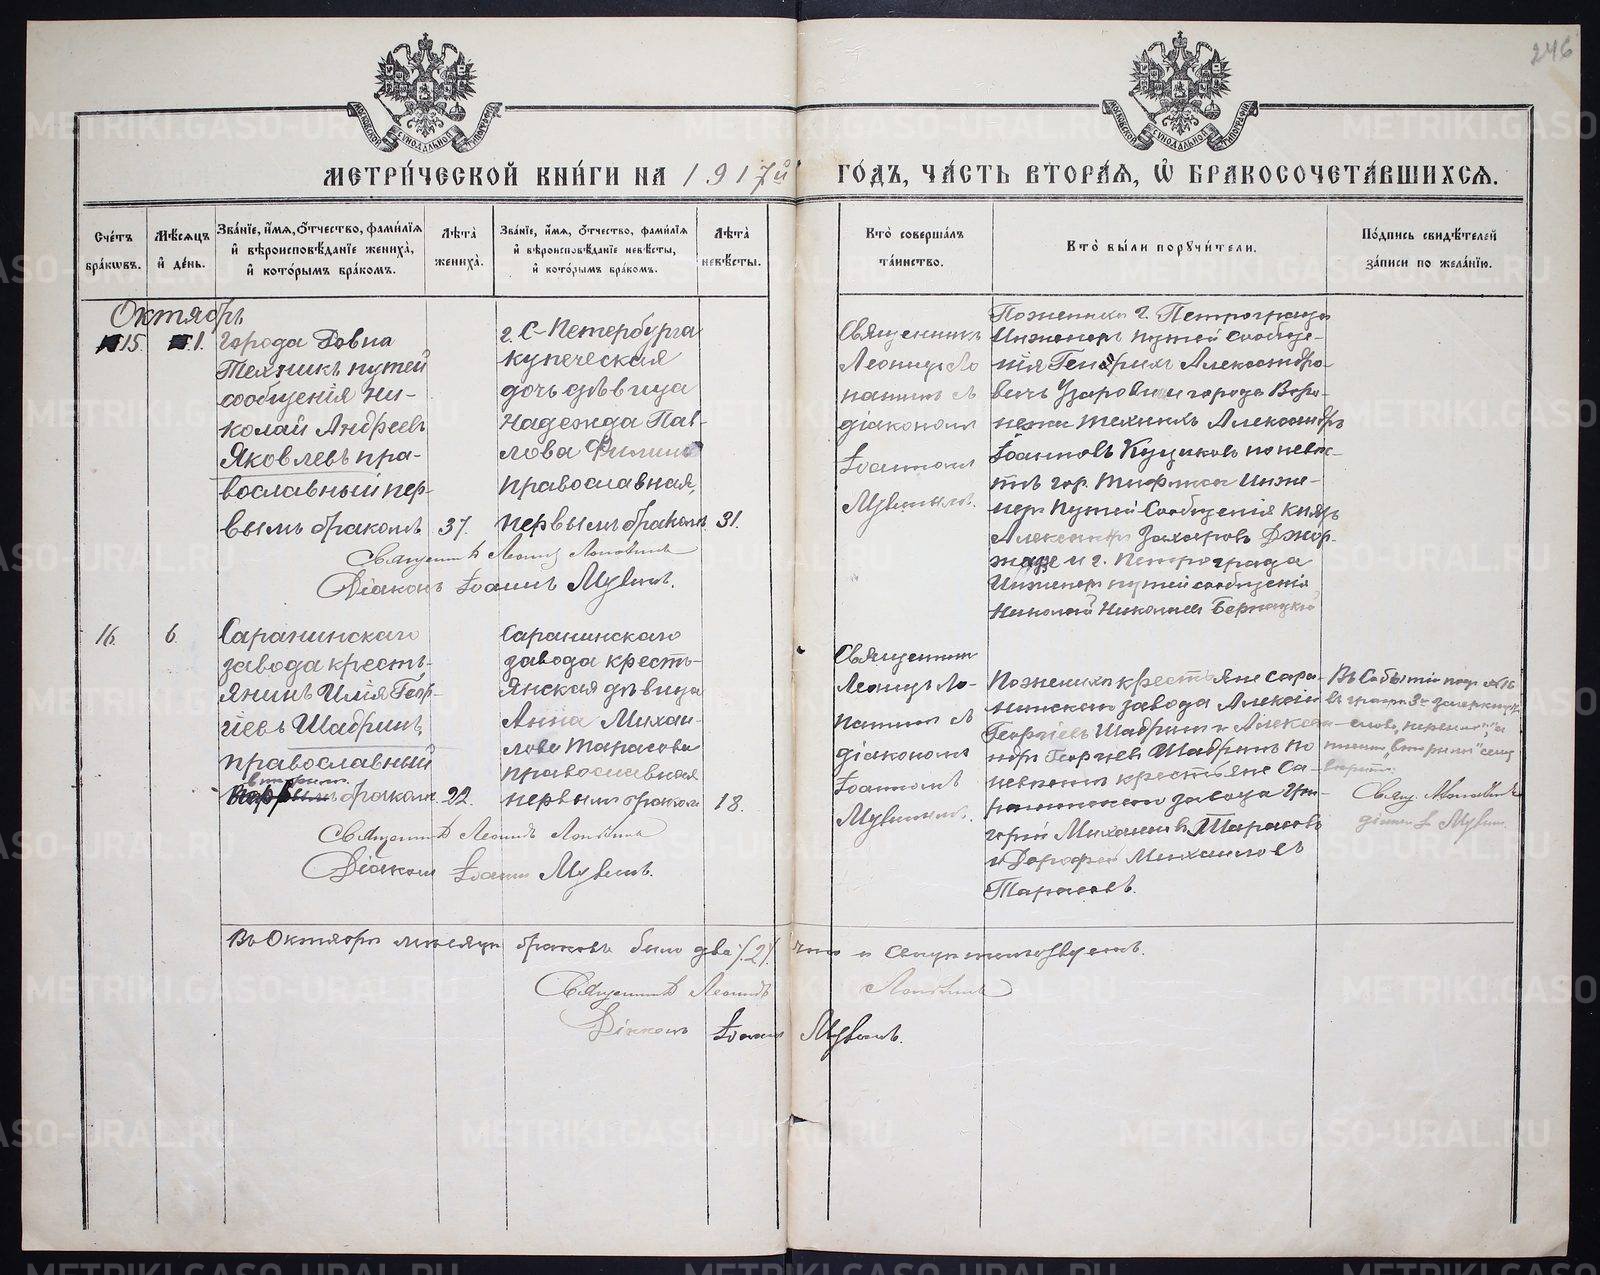 246
МЕТРИ́ЧЕСКОЙ КНИ́ГИ НА 1917й ГО́ДЪ, ЧА́СТЬ ВТОРА́Ѧ, Ѽ БРАКОСОЧЕТА́ВШИХСѦ.
Сче́тъ бра́кѡвъ.
Мѣ́сѧцъ и҆ де́нь.
Зва́нїе, и҆́мѧ, ѻ҆́тчество, фами́лїѧ и҆ вѣроисповѣ́данїе жениха̀, и҆ кото́рымъ бра́комъ.
Лѣ́та жениха̀.
Зва́нїе, и҆́мѧ, ѻ҆́тчество, фами́лїѧ и҆ вѣроисповѣ́данїе невѣ́сты, и҆ кото́рымъ бра́комъ.
Лѣ́та невѣ́сты.
Кто̀ соверша́лъ та́инство.
Кто̀ бы́ли порꙋчи́тели.
По́дпись свидѣ́телей за́писи по жела́нїю.
Октябрь
15.
1.
Города Ровна
Техникъ путей
сообщенія Ни-
колай Андреевъ
Яковлевъ пра-
вославный пер-
вымъ бракомъ
37.
г. С-Петербурга
купеческая
дочь дѣвица
Надежда Пав-
лова
православная,
первымъ бракомъ.
31.
Священникъ
Леонидъ Ло
патинъ съ
діакономъ
Іоанномъ
Поженихѣ г. Петрограда
Инженеръ путей сообще-
нія Генрихъ Александро-
вичъ и города Воро-
нежа техникъ Александръ
Іоанновъ Куциковъ по невѣс-
тѣ гор. Тифлиса Инже-
неръ Путей Сообщенія Князь
Александръ Захаровъ Джор-
жадзе и г. Петрограда
Инженеръ путей сообщенія
Николай Николаевъ Бернацкій
Священникъ Леонидъ Лопатинъ
Діаконъ Іоаннъ
16.
6.
Саранинскаго
завода кресть-
янинъ Илія Геор-
гіевъ Шадринъ,
православный
вторымъ
первымъ бракомъ.
22.
Саранинскаго
завода кресть-
янская дѣвица
Анна Михаи-
лова Тарасова
православная
первымъ бракомъ
18.
Священникъ
Леонидъ Ло-
патинъ съ
діакономъ
Іоанномъ
Поженихѣ крестьяне Сара-
нинскаго завода Алексій
Георгіевъ Шадринъ и Алекса-
ндръ Георгіев Шадринъ по
невѣстѣ крестьяне Са-
ранинскаго завода Гри-
горій Михаиловъ Тарасовъ
и Дорофей Михаиловъ
Тарасовъ.
Священникъ Леонидъ Лопатинъ
Діаконъ Іоаннъ
Въ Октябрѣ мѣсяцѣ браковъ было два /2/. что и свидѣтельствуемъ.
Священникъ Леонидъ Лопатинъ
Діаконъ Іоаннъ
METRIKI.GASO-URAL.RU